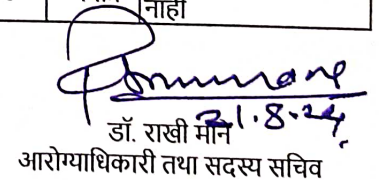 नाही
21.8.24
डॉ. राखी माने
आरोग्याधिकारी तथा सदस्य सचिव